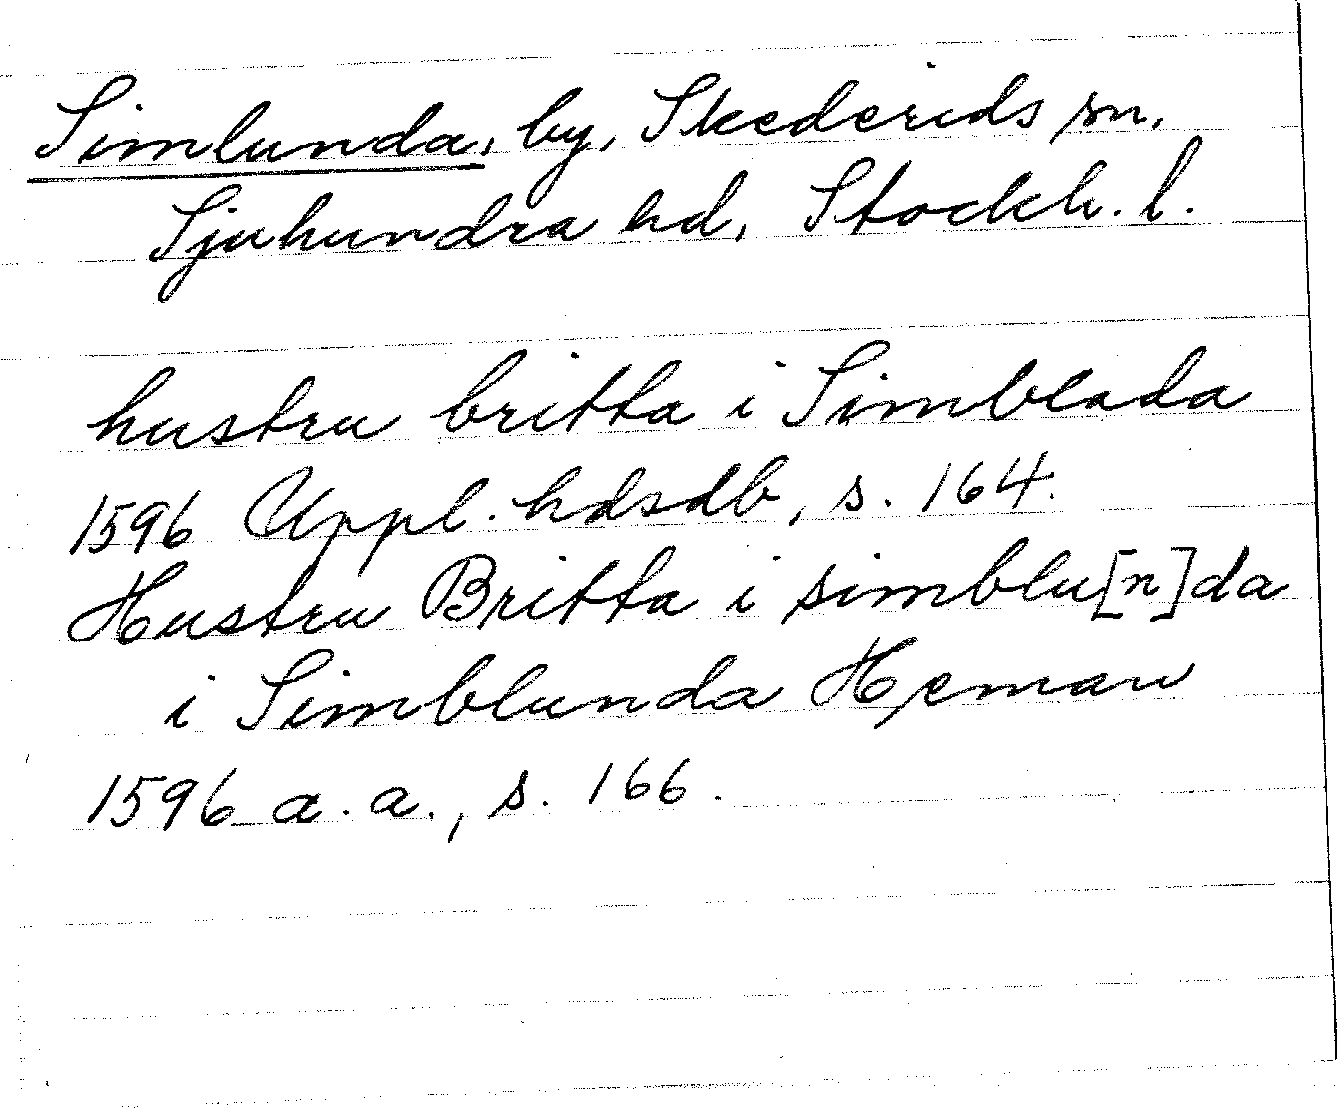 Simlunda, by, Skederids sn,
Sjuhundra hd, Stockh. l.
hustru britta i Simblada
1596 Uppl. hdsdb, s. 164.
Hustru Britta i simblu[n]da
i Simblunda
1596 a. a., s. 166.